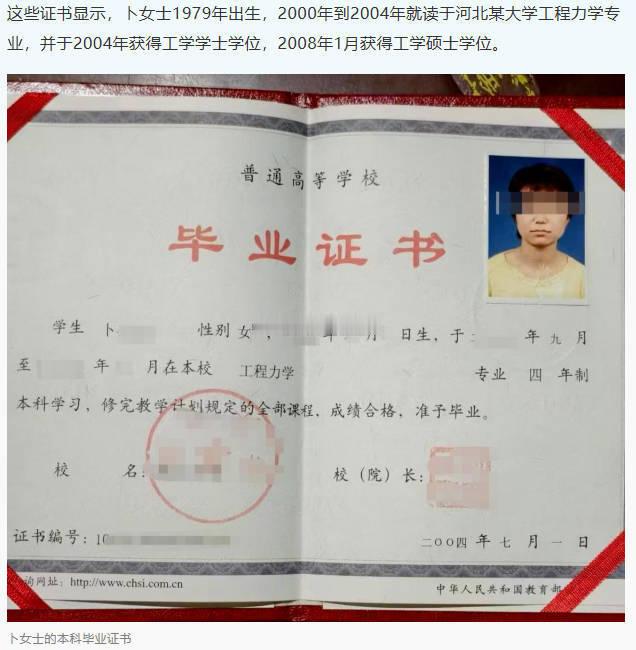 这些证书显示，卜女士1979年出生，2000年到2004年就读于河北某大学工程力学专
业，并于2004年获得工学学士学位，2008年1月获得工学硕士学位。
普通高等学校
毕业证书
学生 卜 性别 女， 日生，于 年 九 月
至 年 月在本校 工程力学 专业 四 年制
本科学习，修完教学计划规定的全部课程，成绩合格，准予毕业。
校 名： 校（院）长：
证书编号：10
二〇〇四 年 七 月 一 日
询网址：http://www.chsi.com.cn
中华人民共和国教育部
卜女士的本科毕业证书